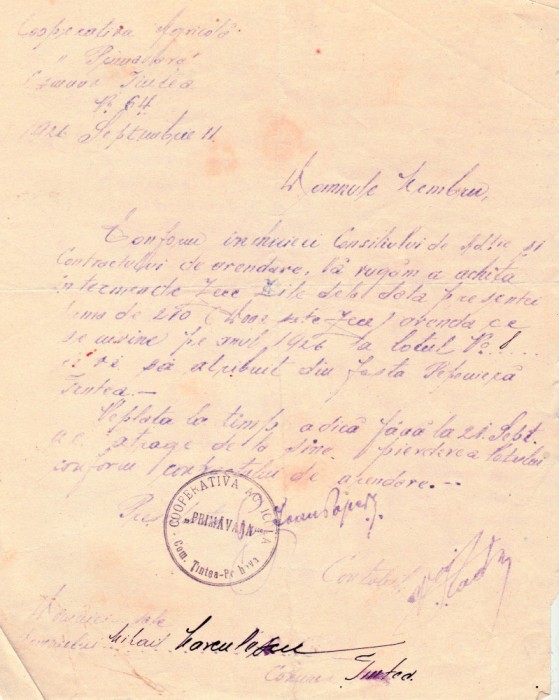 Cooperativa Agricolă
"Primăvara"
Comuna Tintea
No 64
1926 Septembrie 11.
Domnule Membru,
Conform încheierei Consiliului de Adție și
Contractului de arendare, vă rugăm a achita
în termen de zece zile dela data prezentei
suma de 210 (Două sute zece) arenda ce
se cuvine pe anul 1926 la lotul No. 8
ce vi să atribuit din fosta
Tintea.—
Neplata la timp adică până la 21 Sept.
a.c. atrage de la sine pierderea lotului
conform contractului de arendare.—
COOPERATIVA AGRICOLA
"PRIMĂVARA"
Com. Tintea-Prahova
Contabil
Mihail
Comuna Tintea